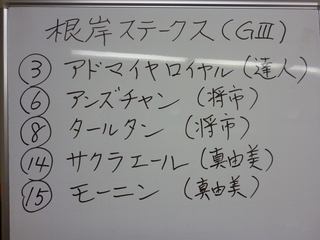 根岸ステークス(GⅢ)
③ アドマイヤロイヤル(達人)
⑥ アンズチャン(将市)
⑧ タールタン(将市)
⑭ サクラエール(真由美)
⑮ モーニン(真由美)